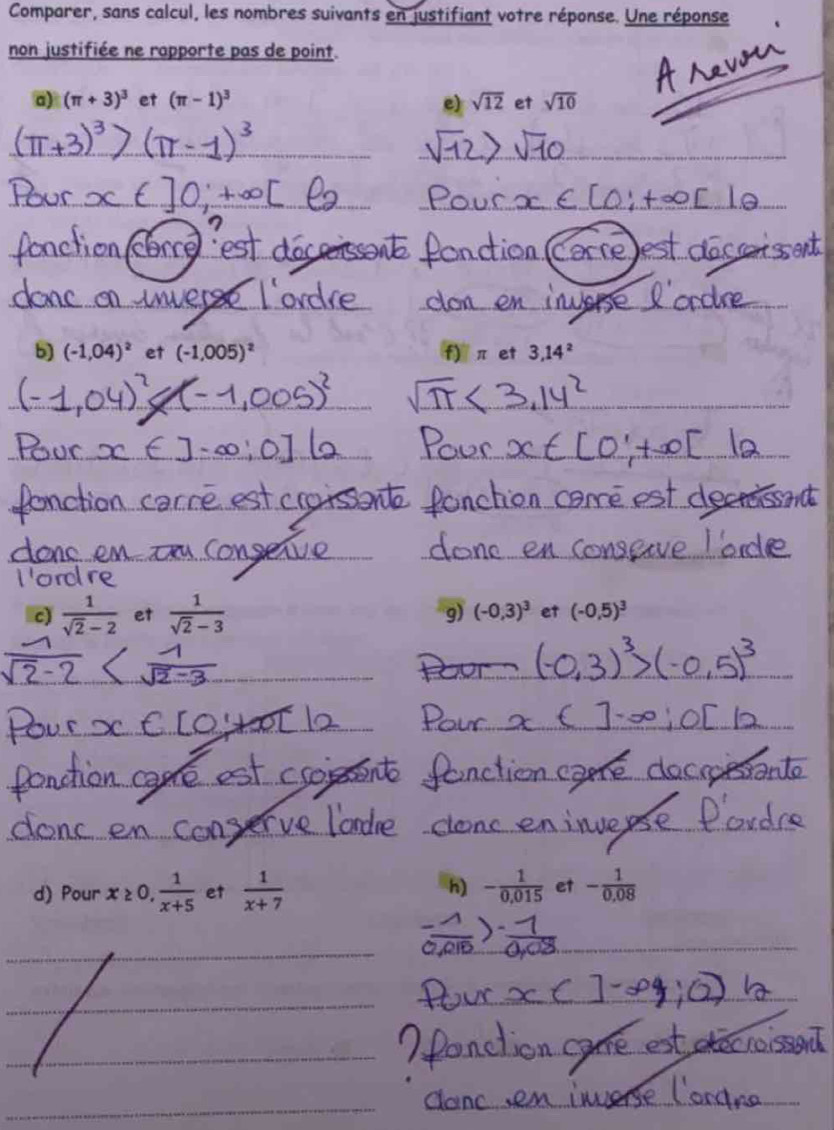 Comparer, sans calcul, les nombres suivants en justifiant votre réponse. Une réponse
non justifiée ne rapporte pas de point.
A revoir
a) (π + 3)³ et (π - 1)³
(π+3)³ > (π-1)³
Pour x ∈ ]0;+∞[ la
fonction carré ? est décroissante
donc on inverse l'ordre
b) (-1,04)² et (-1,005)²
(-1,04)² < (-1,005)²
Pour x ∈ ]-∞;0] la
fonction carré est croissante
donc en conserve
l'ordre
c) 1/(√2 - 2) et 1/(√2 - 3)
1/(√2-2) < 1/(√2-3)
Pour x ∈ [0;+∞[ la
fonction carré est croissante
donc en conserve l'ordre
d) Pour x ≥ 0, 1/(x+5) et 1/(x+7)
e) √12 et √10
√12 > √10
Pour x ∈ [0;+∞[ la
fonction carré est décroissant
don en inverse l'ordre
f) π et 3,14²
√π < 3,14²
Pour x ∈ [0;+∞[ la
fonction carré est decroissant
donc en conserve l'ordre
g) (-0,3)³ et (-0,5)³
Pour (-0,3)³ > (-0,5)³
Pour x ∈ ]-∞;0[ la
fonction carré dacroissante
donc en inverse l'ordre
h) -1/0,015 et -1/0,08
-1/0,015 > -1/0,08
Pour x ∈ ]-∞;0] la
? fonction carré est décroissant
donc en inverse l'ordre